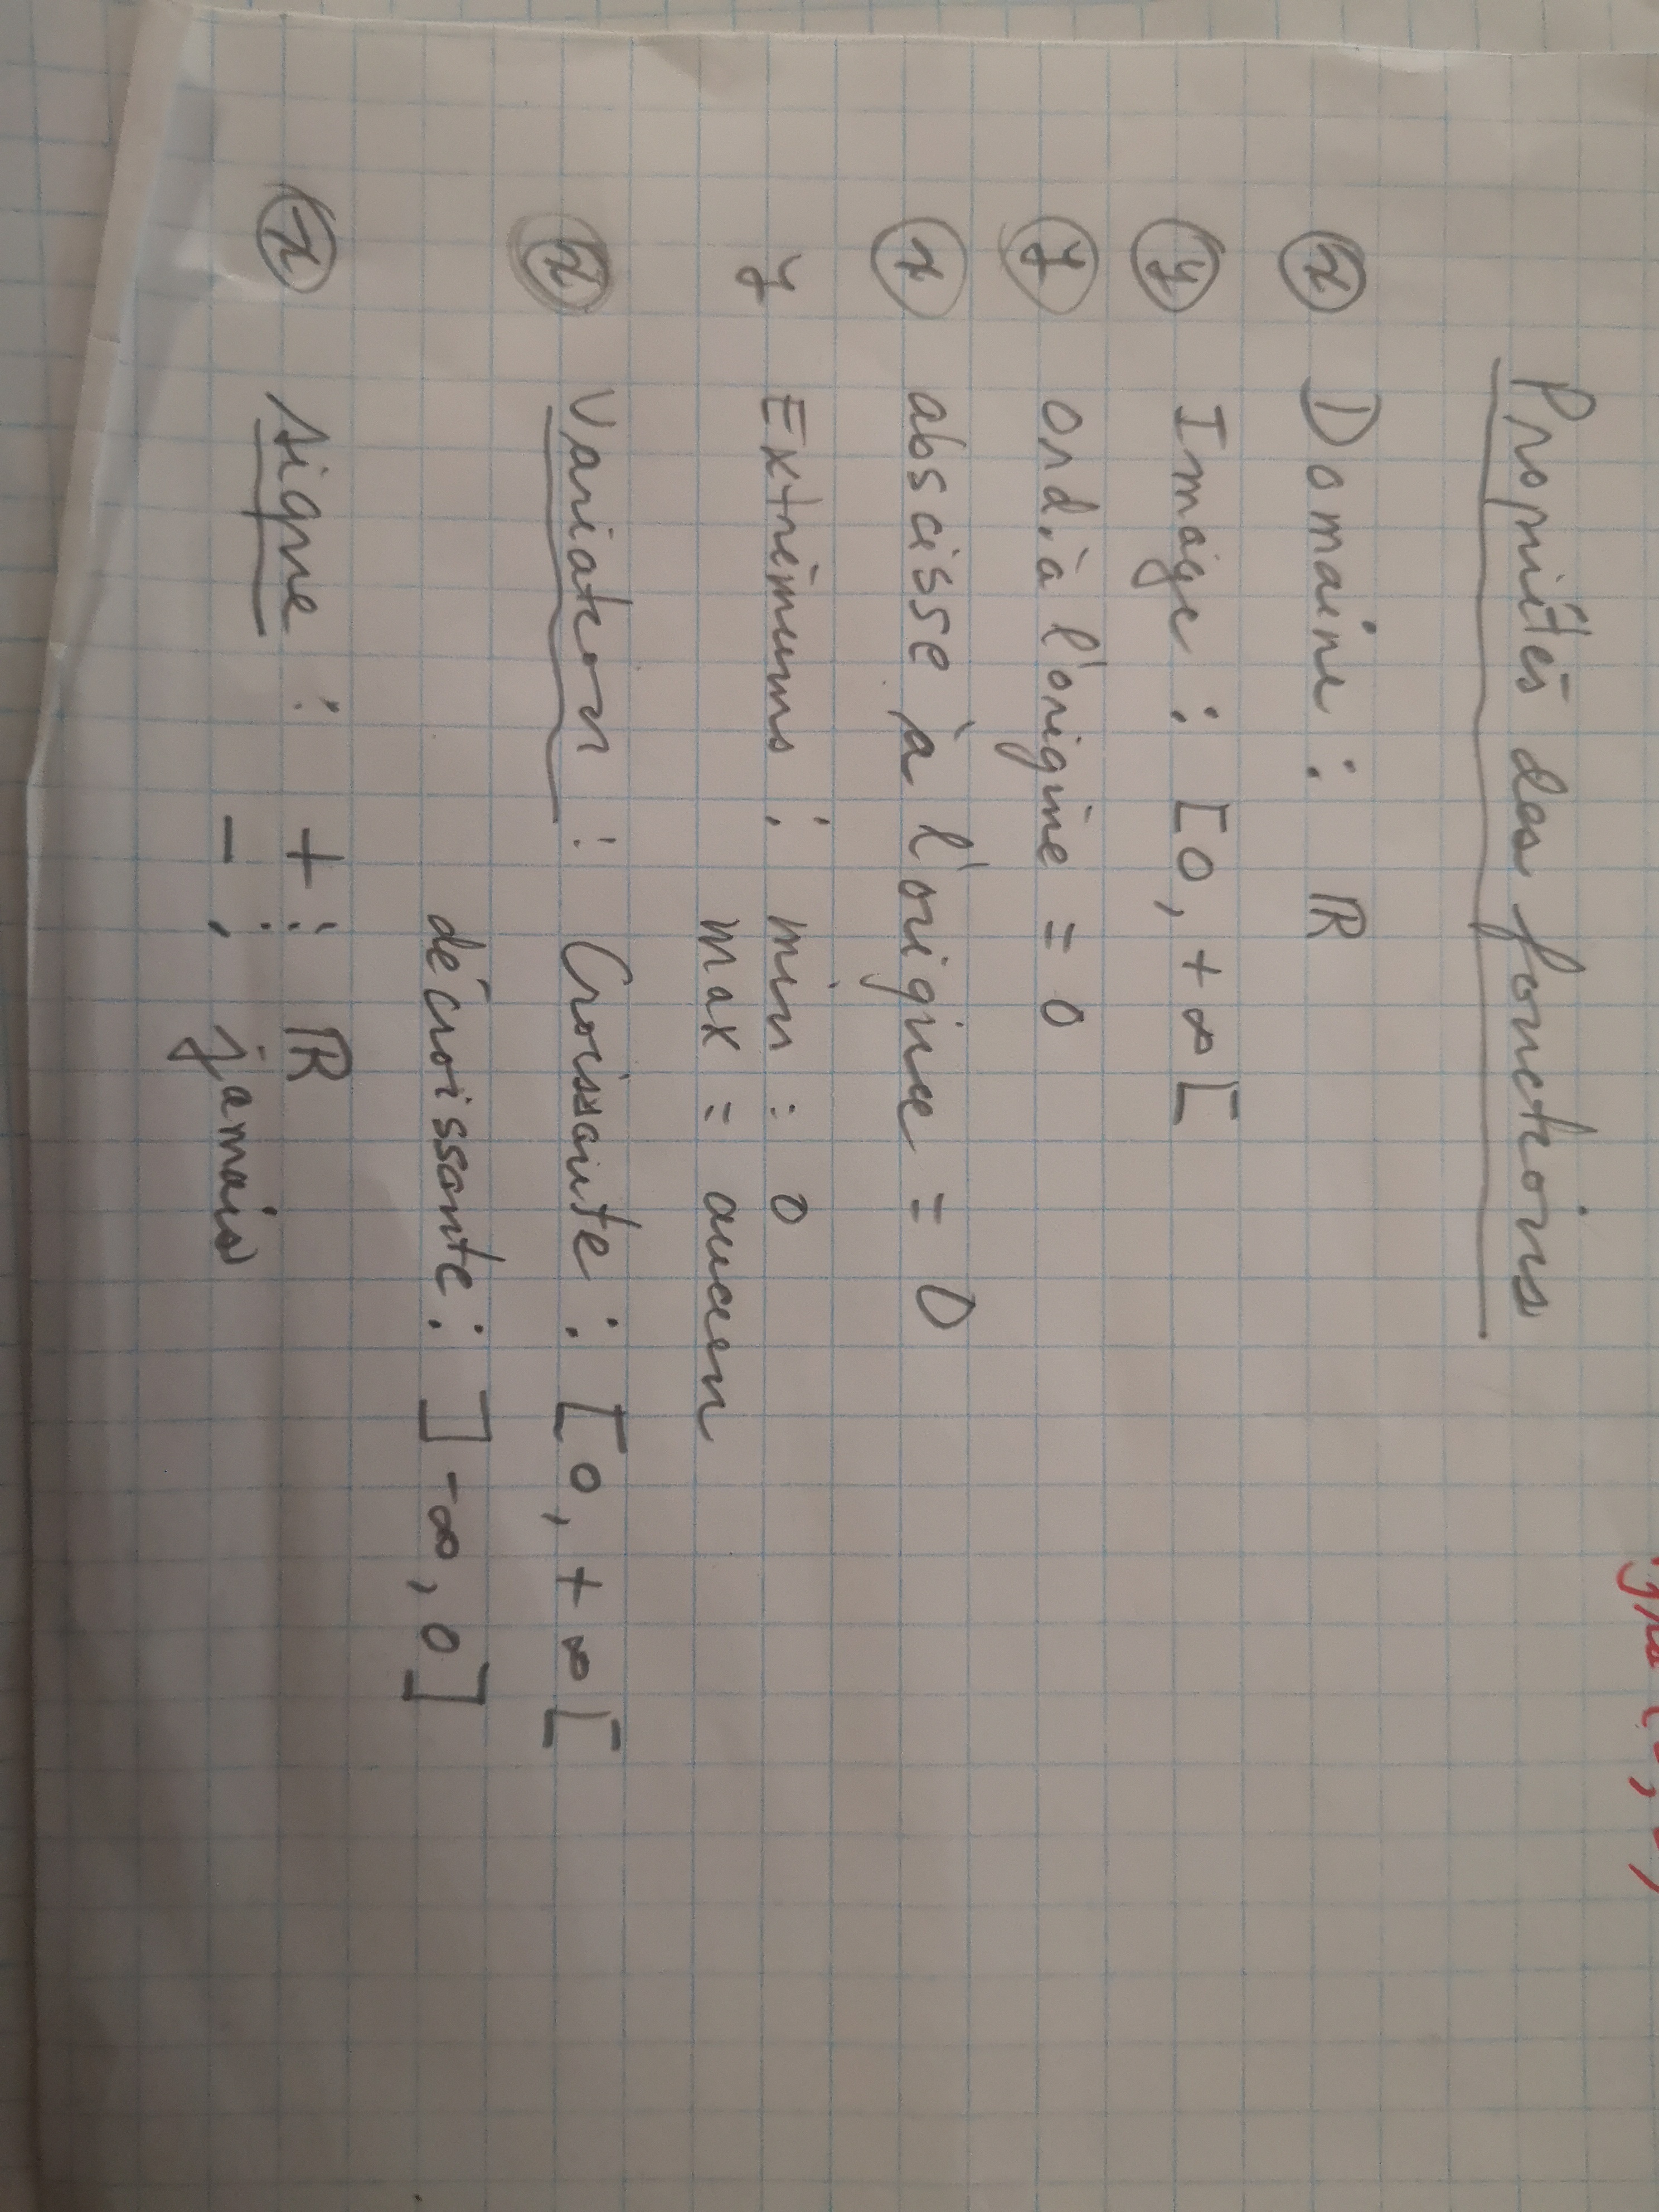 Propriétés des fonctions
x Domaine : ℝ
y Image : [0, +∞[
y ord. à l'origine = 0
x abscisse à l'origine = 0
y Extrêmums : min : 0
max = aucun
x Variation : Croissante : [0, +∞[
décroissante : ]-∞, 0]
x signe : + : ℝ
- : jamais